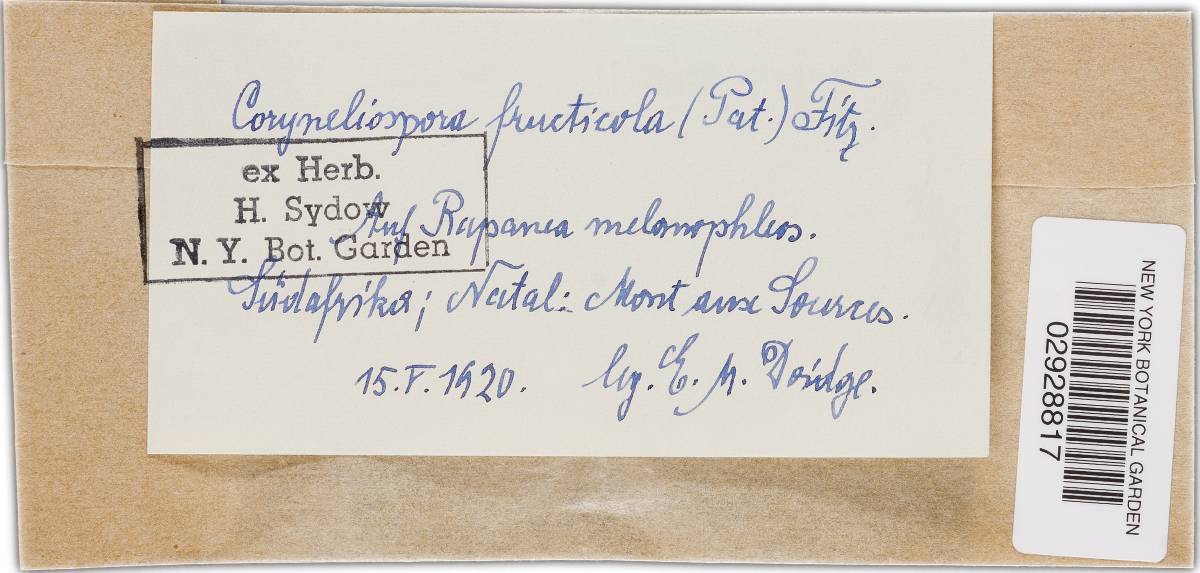 Coryneliospora fructicola (Pat.) Fitz.
ex Herb.
H. Sydow
N. Y. Bot. Garden
Auf Rapanea melanophleos.
Südafrika; Natal: Mont aux Sources.
15.V.1920. leg. E. M. Doidge.
NEW YORK BOTANICAL GARDEN
02928817